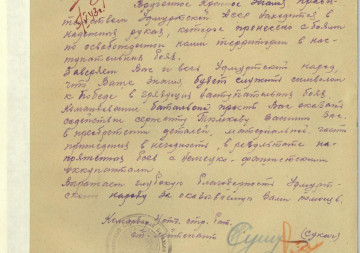 Врученное Красное Знамя прави-
тельством Удмуртской АССР находится в
надежных руках, которое пронесено с боями
по освобожденной нами территории в нас-
тупательных боях.
Заверяем Вас и весь Удмуртский народ
что Ваше Знамя будет служить символом
к Победе в грядущих наступательных боях
Командование батальона просит Вас оказать
содействие сержанту Василию
в приобретении деталей, материальной части
пришедших в негодность, в результате на-
пряженных боев с немецко-фашистскими
оккупантами
Выражаем глубокую благодарность Удмурт-
скому народу за оказываемую Вами помощь.
Командир стр. бат.
ст. лейтенант